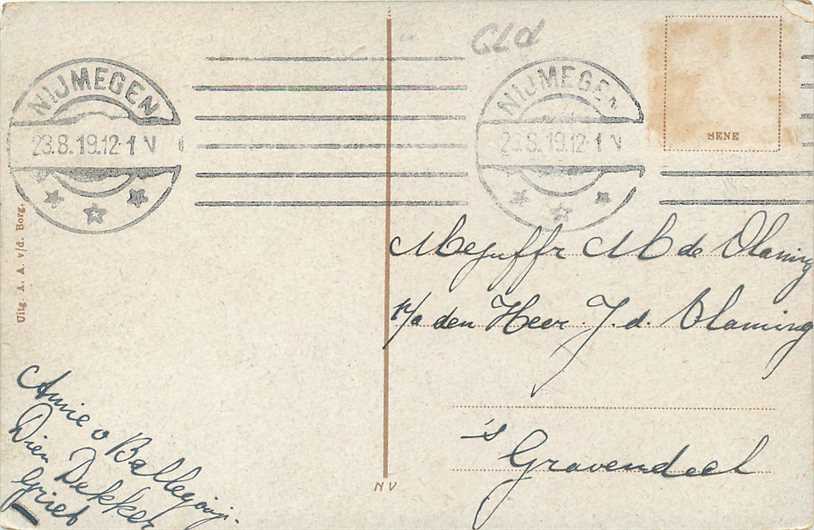 GLd
NIJMEGEN
23.8.19.12-1 N
NIJMEGEN
23.8.19.12-1 N
SENE
Uitg. A. A. v/d. Borg.
Mejuffr M de Vlaming
p/a den Heer J. d. Vlaming
's Gravendeel
Annie v Ballegooij-
Dien Dekker
Griet
NV